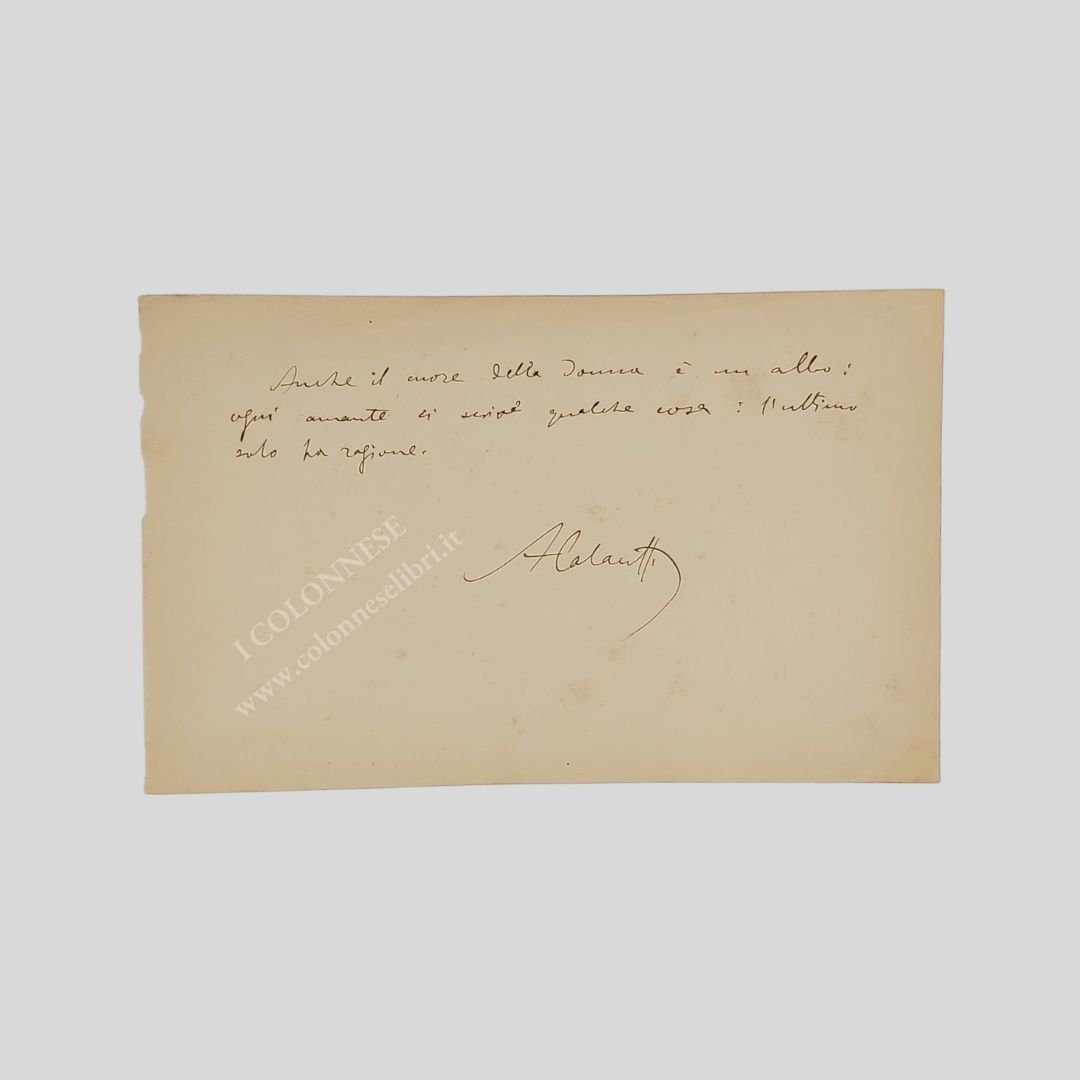 Anche il cuore della donna è un albo:
ogni amante ci scrive qualche cosa: l'ultimo
solo ha ragione.
I COLONNESE
www.colonneselibri.it